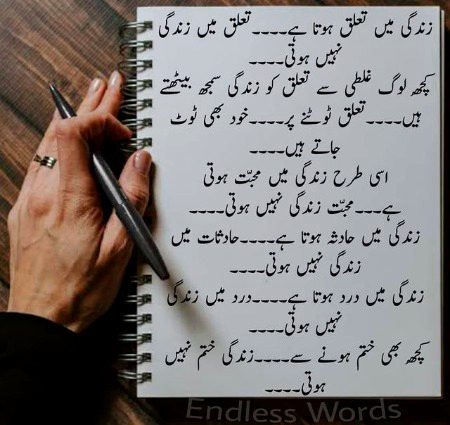 زندگی میں تعلق ہوتا ہے۔۔۔۔تعلق میں زندگی
نہیں ہوتی۔۔۔۔
کچھ لوگ غلطی سے تعلق کو زندگی سمجھ بیٹھتے
ہیں۔۔۔۔تعلق ٹوٹنے پر۔۔۔۔خود بھی ٹوٹ
جاتے ہیں۔۔۔۔
اسی طرح زندگی میں محبّت ہوتی
ہے۔۔۔محبّت زندگی نہیں ہوتی۔۔۔۔
زندگی میں حادثہ ہوتا ہے۔۔۔۔حادثات میں
زندگی نہیں ہوتی۔۔۔۔
زندگی میں درد ہوتا ہے۔۔۔۔درد میں زندگی
نہیں ہوتی۔۔۔۔
کچھ بھی ختم ہونے سے۔۔۔۔زندگی ختم نہیں
ہوتی۔۔۔۔
Endless Words